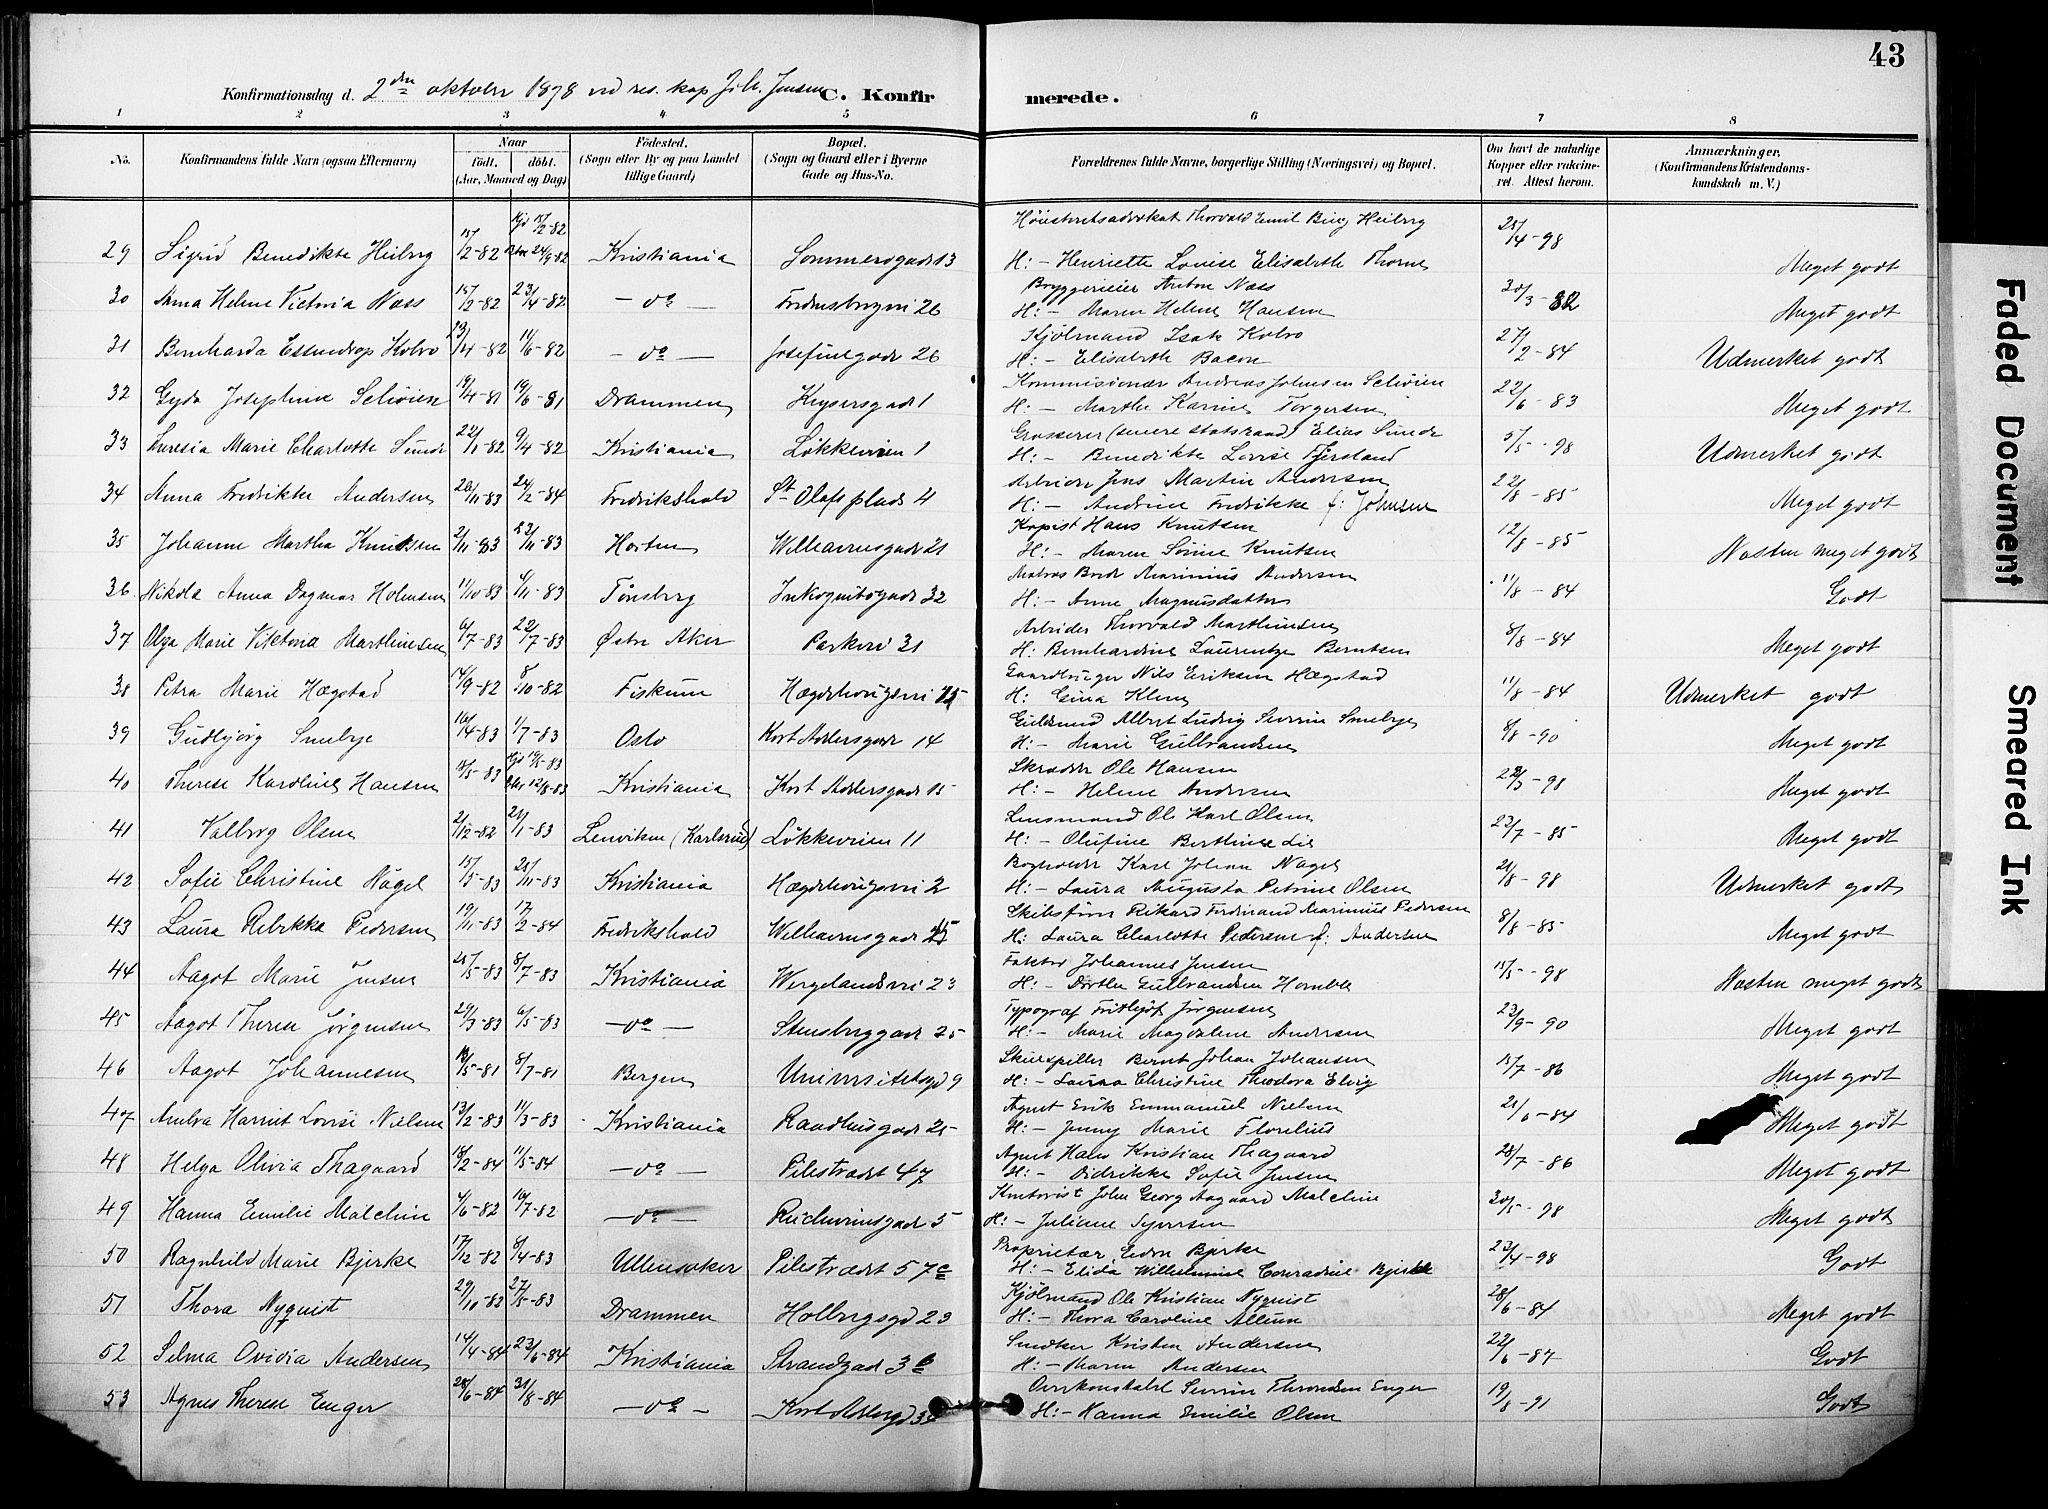 43
Konfirmationsdag d. 2den oktober 1898 ved res. kap Joh. Jensen C. Konfirmerede.
1 2 3 4 5 6 7 8
No. Konfirmandens fulde Navn (ogsaa Efternavn) Naar født, døbt. (Aar, Maaned og Dag) Fødested. (Sogn eller By og paa Landet tillige Gaard) Bopæl. (Sogn og Gaard eller i Byerne Gade og Hus-No. Forældrenes fulde Navne, borgerlige Stilling (Næringsvei) og Bopæl. Om havt de naturlige Kopper eller vakcineret. Attest herom. Anmærkninger, (Konfirmandens Kristendomskundskab m. V.)
Høiesteretsadvokat Thorvald Emil Bing Heiberg
29 Sigrid Benedikte Heiberg 15/2-82 hjd 15/2-82 24/9-82 Kristiania Sommersgade 13 H:- Henriette Louise Elisabeth Thorne 25/4-98 Meget godt
Bryggerieier Anton Næss
30 Anna Helene Victoria Næss 15/2-82 23/4-82 -do- Fredensborgvei 26 H:- Maren Helene Hansen 30/3-82 Meget godt
Kjølmand Isak Kobro
31 Bernharda Essendrop Kobro 23/4-82 11/6-82 -do- Josefinegade 26 H:- Elisabeth Bacon 27/2-84 Udmerket godt
Kommisionær Andreas Johnsen Schiøien
32 Gyda Josephine Schiøien 19/4-81 19/6-81 Drammen Keysersgade 1 H:- Marthe Karine Torgersen 22/6-83 Meget godt
Grosserer (senere statsraad) Elias Sunde
33 Theresia Marie Charlotte Sunde 22/1-82 9/4-82 Kristiania Løkkeveien 1 H:- Benedikte Lovise Fjersland 5/5-98 Udmerket godt
Arbeider Jens Martin Andersen
34 Anna Fredrikke Andersen 26/11-83 24/2-84 Fredrikshald St. Olafs plads 4 H:- Andrine Fredrikke f: Johnsen 22/8-85 Meget godt
Kopist Hans Knutsen
35 Johanne Martha Knutsen 2/11-83 23/11-83 Horten Welhavensgade 21 H:- Maren Sørine Knutsen 12/8-85 Næsten meget godt
Matros Bredr Marinius Andersen
36 Nikola Anna Dagmar Holmsen 11/10-83 4/11-83 Tønsberg Inkognitogade 32 H:- Anne Magnusdatter 11/8-84 Godt
Arbeider Thorvald Marthinsen
37 Olga Marie Viktoria Marthinsen 6/7-83 22/7-83 Østre Aker Parkvei 31 H: Bernhardine Laurentze Berntsen 8/8-84 Meget godt
Gaardbruger Nils Eriksen Hægstad
38 Petra Marie Hægstad 14/9-82 8/10-82 Fiskum Hægdehougsvei 15 H: Gina Kleve 11/8-84 Udmerket godt
Guldsmed Albert Ludvig Severin Smebye
39 Gudbjørg Smebye 16/4-83 1/7-83 Oslo Kort Adelersgade 14 H:- Marie Gulbrandsen 8/8-90 Meget godt
Skrædder Ole Hansen
40 Therese Karoline Hansen 18/5-83 hjd 19/5-83 12/8-83 Kristiania Kort Adelersgade 15 H:- Helene Andersen 22/3-98 Meget godt
Lensmand Ole Karl Olsen
41 Valborg Olsen 2/12-82 21/1-83 Lenviken (Karlsrud) Løkkeveien 11 H:- Olufine Berthine Lie 23/7-85 Meget godt
Bogholder Karl Johan Nagel
42 Sofie Christine Nagel 15/5-83 25/11-83 Kristiania Hægdehougsvei 2 H:- Laura Augusta Petrine Olsen 21/8-98 Udmerket godt
Skibsfører Rikard Ferdinand Marinius Pedersen
43 Laura Rebekka Pedersen 19/11-83 17/2-84 Fredrikshald Welhavensgade 25 H: Laura Charlotte Pedersen f: Andersen 8/8-85 Meget godt
Faktor Johannes Jensen
44 Aagot Marie Jensen 25/5-83 8/7-83 Kristiania Wergelandsvei 23 H:- Dorthe Gulbrandsen Homble 15/5-98 Næsten meget godt
Typograf Fritljof Jørgensen
45 Aagot Therese Jørgensen 29/3-83 6/5-83 -do- Stensberggade 25 H:- Marie Magdalene Andersen 23/9-90 Meget godt
Skuespiller Bernt Johan Johansen
46 Aagot Johannesen 18/5-81 8/7-81 Bergen Universitetsgd 9 H:- Laura Christine Theodora Elvig 15/7-86 Meget godt
Agent Erik Emmanuel Nielsen
47 Andrea Harriet Lovise Nielsen 13/2-83 11/3-83 Kristiania Raadhusgade 25 H:- Jenny Marie Florelius 21/6-84 Meget godt
Agent Hans Kristian Thagaard
48 Helga Olivia Thagaard 18/2-84 11/5-84 -do- Pilestrædet 47 H:- Didrikke Sofie Jensen 28/7-86 Meget godt
Kontorist John Georg Aagaard Malchin
49 Hanna Emilie Malchin 4/6-82 16/7-82 -do- Ruseløkveinsgade 5 H:- Juliane Syversen 30/5-98 Meget godt
Proprietær Edv. Bjerke
50 Ragnhild Marie Bjerke 17/12-82 8/4-83 Ullensaker Pilestrædet 57c H:- Elida Wilhelmine Conradine Bjerke 23/4-98 Godt
Kjølmand Ole Kristian Nyquist
51 Thora Nyquist 29/10-82 27/5-83 Drammen Holbergsgd 23 H:- Thora Caroline Allum 28/6-84 Meget godt
Snedker Kristen Andersen
52 Selma Ovidia Andersen 14/4-84 23/6-84 Kristiania Strandgad 3b H:- Maren Andersen 22/6-87 Godt
Overkonstabel Severin Throndsen Enger
53 Agnes Therese Enger 28/6-84 31/8-84 -do- Kort Adlersgd 3 H:- Hanna Emilie Olsen 19/8-91 Godt
Faded Document
Smeared Ink